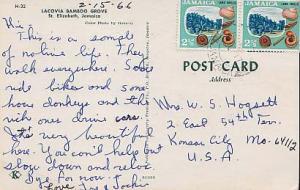 H-32
LACOVIA BAMBOO GROVE
St. Elizabeth, Jamaica
2-15-66
Hi,
This is a sample
of native life. They
walk everywhere. Some
ride bikes and some
have donkeys and the
rich ones drive cars.
very beautiful
here. You can't help but
slow down and relax.
Bye for now.
Love
JAMAICA
JAMAICA
POST CARD
Address
Mrs. W. S. Hogsett
2 East 54th Terr.
Kansas City Mo. 64112
U.S.A.
K